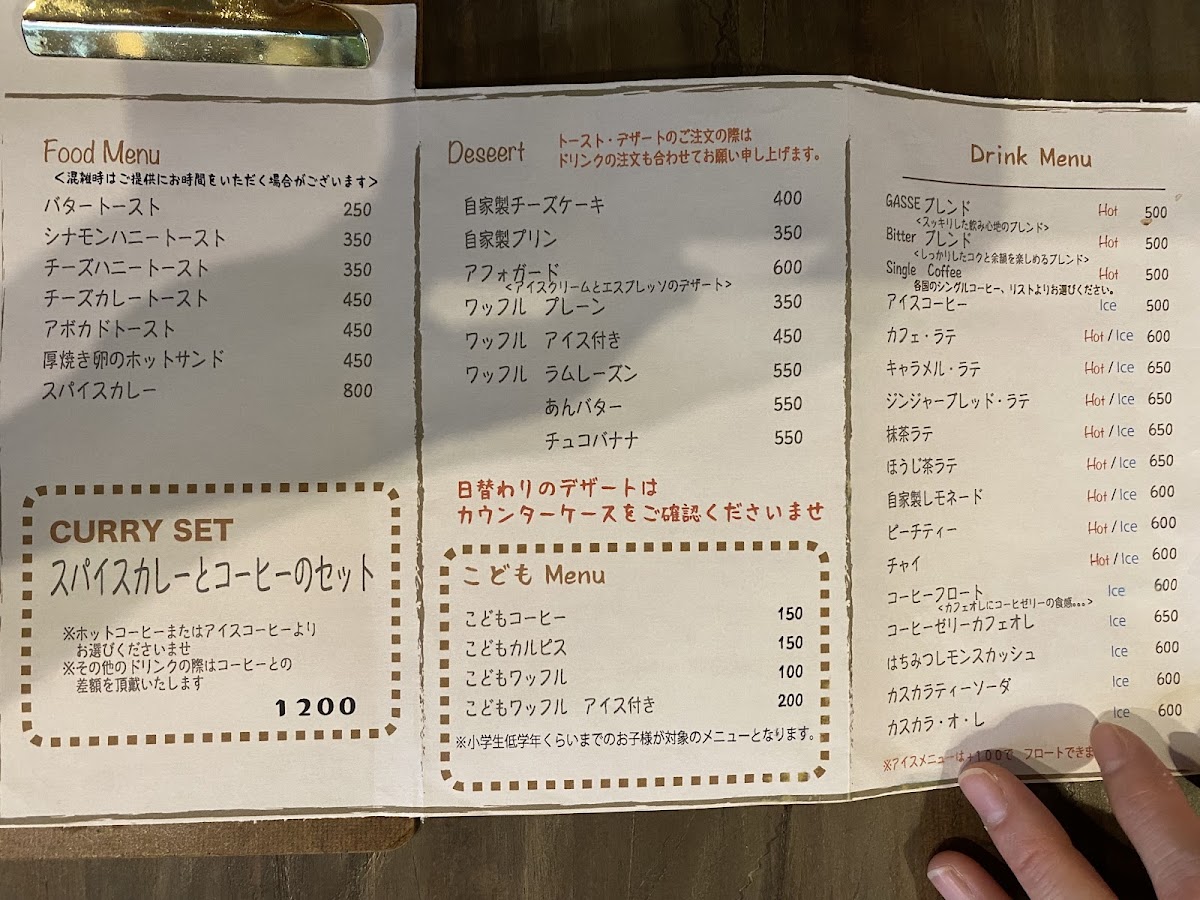 Food Menu
<混雑時はご提供にお時間をいただく場合がございます>
バタートースト 250
シナモンハニートースト 350
チーズハニートースト 350
チーズカレートースト 450
アボカドトースト 450
厚焼き卵のホットサンド 450
スパイスカレー 800
CURRY SET
スパイスカレーとコーヒーのセット
※ホットコーヒーまたはアイスコーヒーより
お選びくださいませ
※その他のドリンクの際はコーヒーとの
差額を頂戴いたします
1200
Deseert
トースト・デザートのご注文の際は
ドリンクの注文も合わせてお願い申し上げます。
自家製チーズケーキ 400
自家製プリン 350
アフォガード 600
<アイスクリームとエスプレッソのデザート>
ワッフル プレーン 350
ワッフル アイス付き 450
ワッフル ラムレーズン 550
あんバター 550
チョコバナナ 550
日替わりのデザートは
カウンターケースをご確認くださいませ
こども Menu
こどもコーヒー 150
こどもカルピス 150
こどもワッフル 100
こどもワッフル アイス付き 200
※小学生低学年くらいまでのお子様が対象のメニューとなります。
Drink Menu
GASSE ブレンド Hot 500
<スッキリした飲み心地のブレンド>
Bitter ブレンド Hot 500
<しっかりしたコクと余韻を楽しめるブレンド>
Single Coffee Hot 500
各国のシングルコーヒー、リストよりお選びください。
アイスコーヒー Ice 500
カフェ・ラテ Hot / Ice 600
キャラメル・ラテ Hot / Ice 650
ジンジャーブレッド・ラテ Hot / Ice 650
抹茶ラテ Hot / Ice 650
ほうじ茶ラテ Hot / Ice 650
自家製レモネード Hot / Ice 600
ピーチティー Hot / Ice 600
チャイ Hot / Ice 600
コーヒーフロート Ice 600
<カフェオレにコーヒゼリーの食感。。。>
コーヒーゼリーカフェオレ Ice 650
はちみつレモンスカッシュ Ice 600
カスカラティーソーダ Ice 600
カスカラ・オ・レ Ice 600
※アイスメニューは+100で フロートできま